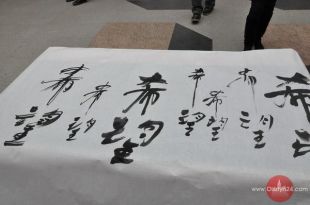 希望
希望
希望
希望
希望
希望
希望
www.Danjn24.com